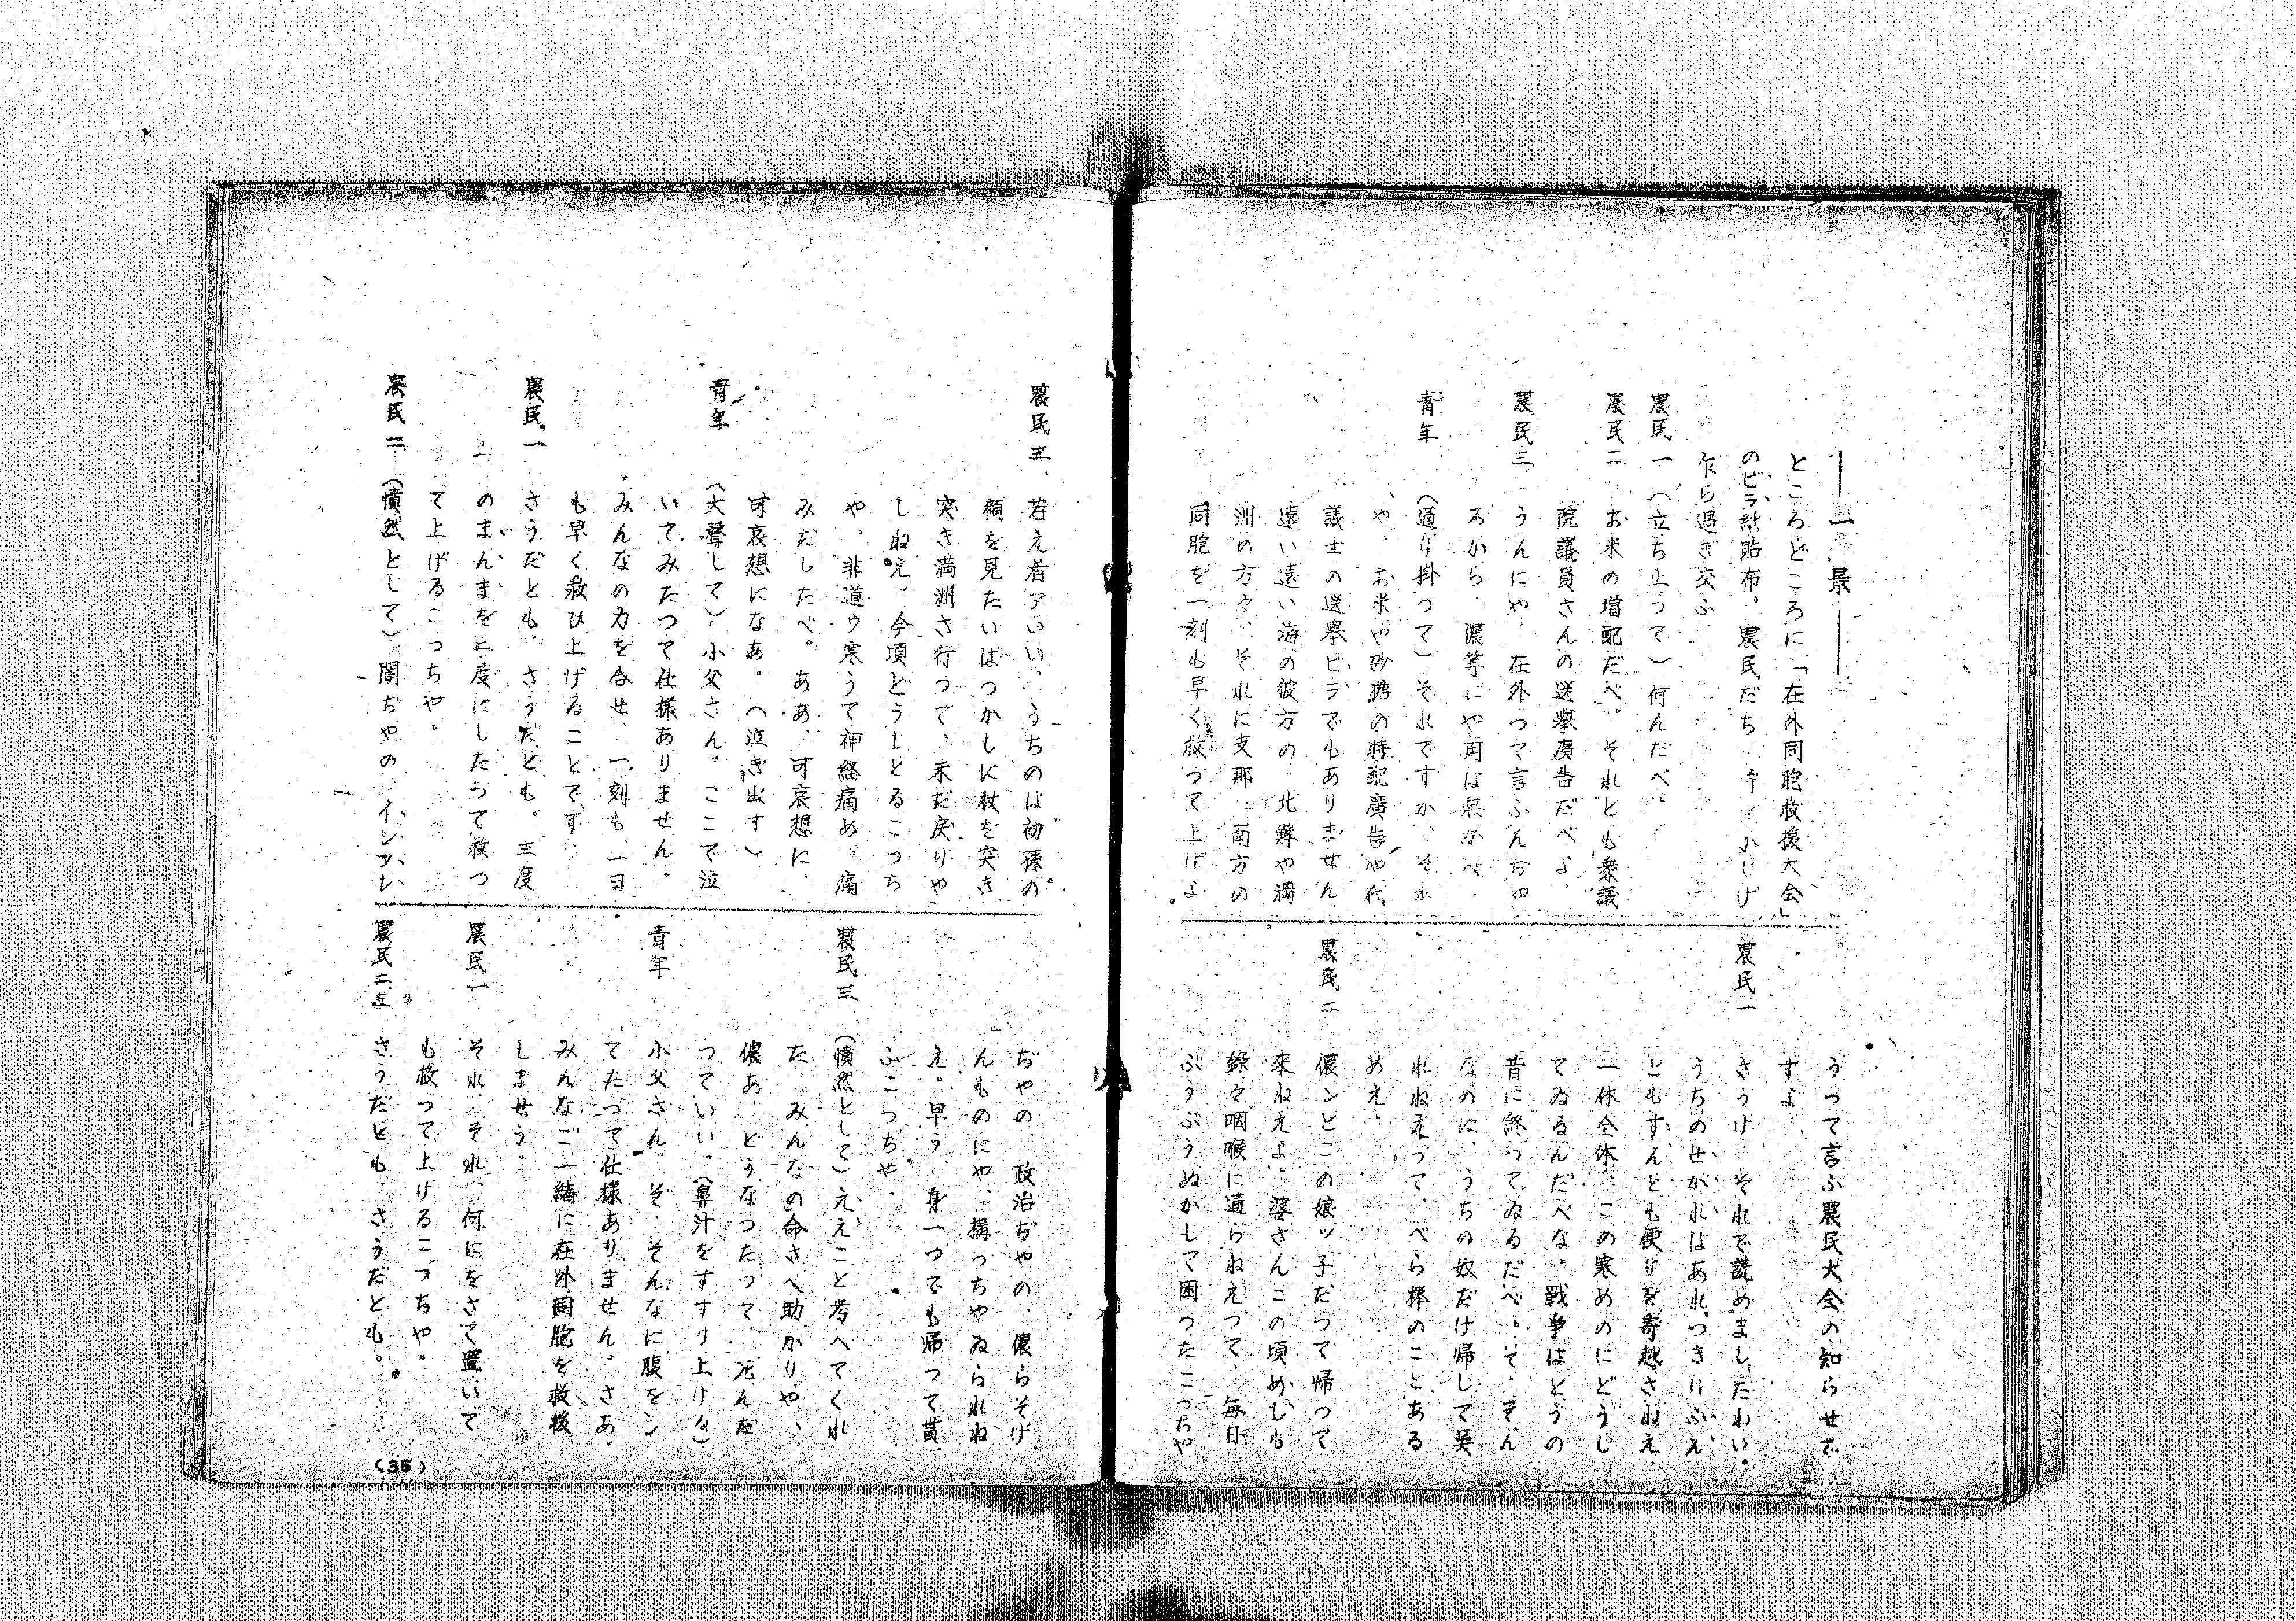 ── 一 景 ──
ところどころに「在外同胞救援大会」
のビラ紙貼布。農民だち、いげ
乍ら過ぎ交ふ
農民一 （立ち上つて）何んだべ。
農民二 お米の増配だべ。それとも衆議
院議員さんの選挙廣告だべよ、
農民三 うんにや、在外つて言ふんぢや
ろから、儂等にや用は無かべ、
青年 （通り掛つて）それですか、それ
や、お米や砂糖の特配廣告や代
議士の選挙ビラでもありません
遠い遠い海の彼方の、北鮮や満
洲の方々、それに支那、南方の
同胞を一刻も早く救つて上げよ
うつて言ふ農民大会の知らせで
すよ、
農民一 さうけ、それで読めましたわい。
うちのせがれはあれつきりふえ
ともすんとも便りを寄越さねえ、
一体全体、この寒めのにどうし
てゐるんだべな、戦争はとうの
昔に終つてゐるだべ。そ、そん
なのに、うちの奴だけ帰して莫
れねえつて、べら棒のことある
めえ。
農民二 儂ンとこの娘ッ子だつて帰つて
來ねえよ。婆さんこの頃めしも
録々咽喉に通らねえつて、毎日
ぶうぶうぬかして困つたこつちや
農民三、若え者アいい、うちのは初孫の
顔を見たいばつかしに杖を突き
突き満洲さ行つて、未だ戻りや
しねえ。今頃どうしとるこつち
や。非道う寒うて神経痛め、痛
みだしたべ。ああ、可哀想に、
可哀想になあ。（泣き出す）
青年 （大聲して）小父さん。ここで泣
いてみたつて仕様ありません。
みんなの力を合せ、一刻も、一日
も早く救ひ上げることです
農民一 さうだとも、さうだとも。三度
のまんまを二度にしたつて救つ
て上げるこつちや。
農民二 （憤然として）闇ぢやの、インフレ
ぢやの、政治ぢやの、儂らそげ
んものにや、構つちやゐられね
え。早う、身一つでも帰つて貰
ふこつちや、
農民三 （憤然として）ええこと考へてくれ
た、みんなの命さへ助かりや、
儂あ、どうなつたつて、死んだ
つていい。（鼻汁をすすり上げる）
青年 小父さん。そ、そんなに腹をシ
てたつて仕様ありません。さあ、
みんなご一緒に在外同胞を救援
しませう。
農民一 それ、それ、何にをさて置いて
も救つて上げるこつちや。
農民二三 さうだとも、さうだとも。
（35）